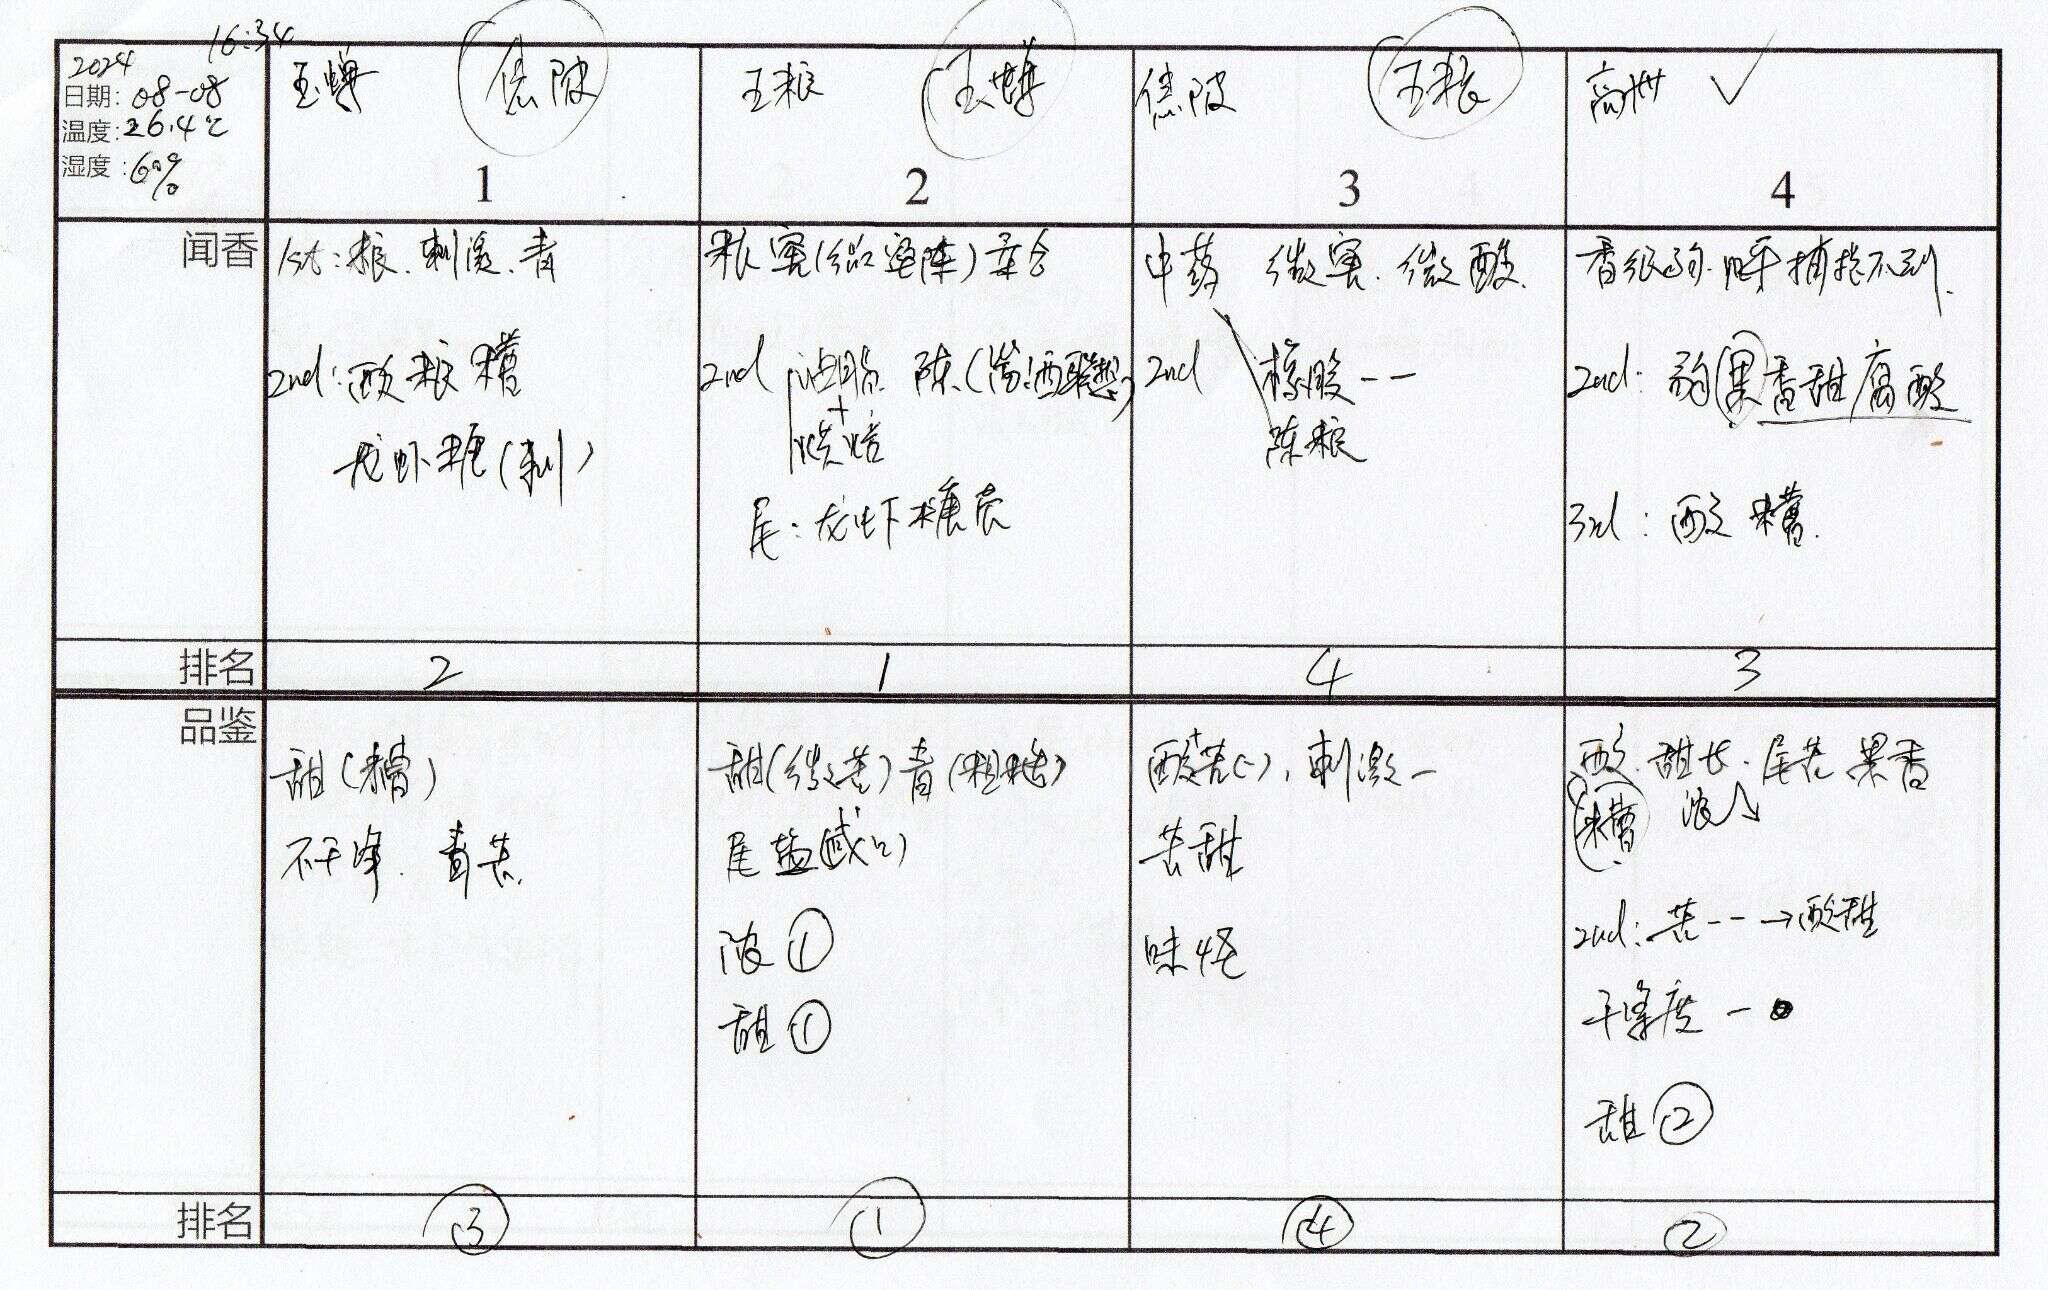 16:34
2024
日期: 08-08
温度: 26.4℃
湿度: 60%
玉蝉 焦陂
1
五粮 玉蝉
2
焦陂 五粮
3
高州 ✓
4
闻香
1st: 粮、刺激、青
2nd: 酸粮糟
龙虾糖(刺)
粮窖(微窖陈)
2nd 油脂 陈(酱酒联想)
+
烘焙
尾: 龙虾糖壳
中药 微窖、微酸
2nd 橡胶--
陈粮
香很弱、捕捉不到
2nd: 弱果香甜腐酸
3rd: 酸糟
排名
2
1
4
3
品鉴
甜(糟)
不干净、青苦
甜(微苦)青(粗糙)
尾盐(咸)
浓①
甜①
酸+苦(-)、刺激-
苦甜
味怪
酸、甜长、尾苦 果香
糟 浓
2nd: 苦--→酸甜
干净度-
甜②
排名
③
①
④
②